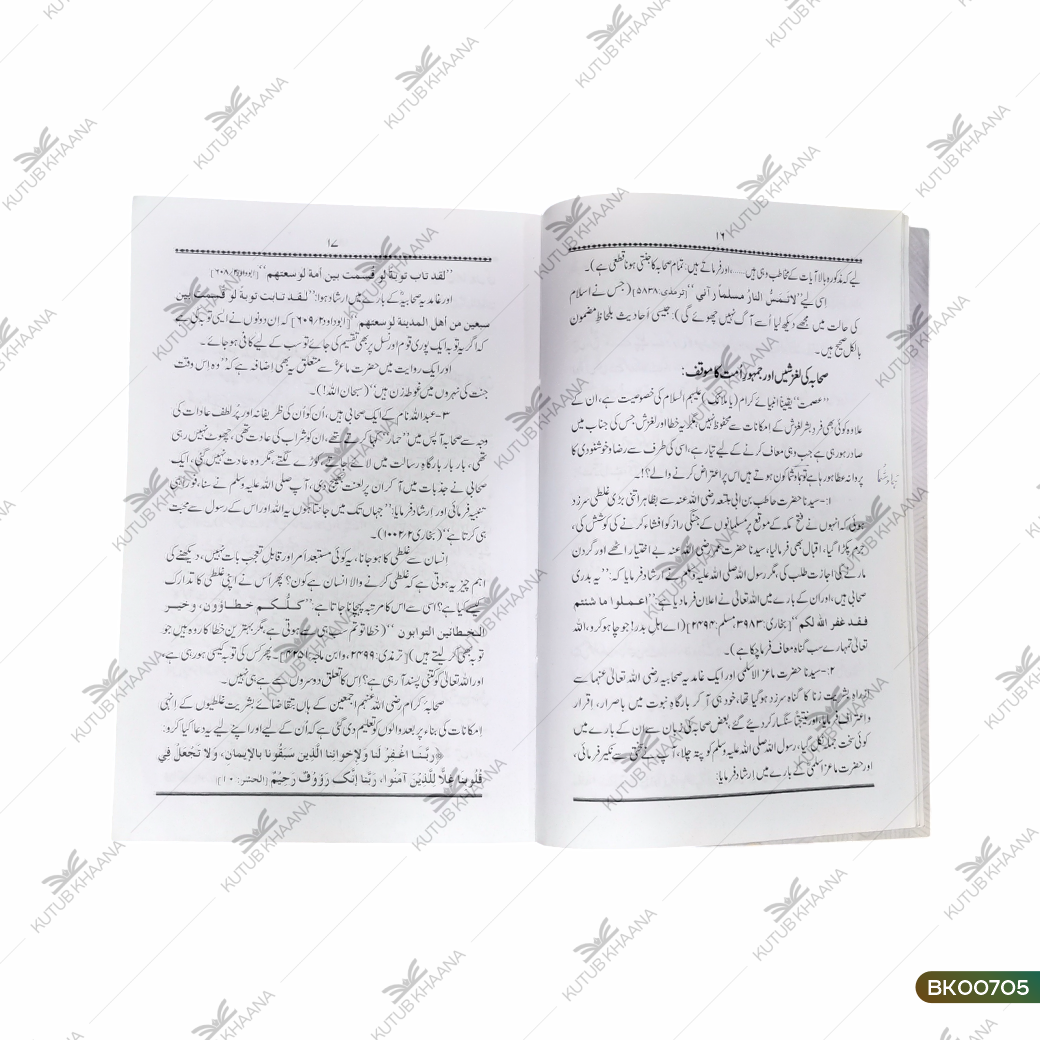 ۱۶
لیے کہ مذکورہ بالا آیات کے مخاطب وہی ہیں......، اور فرماتے ہیں: تمام صحابہ کا جنتی ہونا قطعی ہے)۔
اسی لیے ”لاتَمَسُّ النارُ مسلماً رآني“ (ترمذی:۵۸۳۸) (جس نے اسلام
کی حالت میں مجھے دیکھ لیا اُسے آگ نہیں چھوئے گی): جیسی اَحادیث بلحاظِ مضمون
بالکل صحیح ہیں۔
صحابہ کی لغزشیں اور جمہور اُمت کا موقف:
”عصمت“ یقیناً انبیائے کرام (یا ملائکہ) علیہم السلام کی خصوصیت ہے، ان کے
علاوہ کوئی بھی فرد بشر لغزش کے امکانات سے محفوظ نہیں؛ مگر یہ خطا اور لغزش جس کی جناب میں
صادر ہو رہی ہے جب وہی معاف کرنے کے لیے تیار ہے، اسی کی طرف سے رضا و خوشنودی کا
پروانہ عطا ہو رہا ہے تو ہما و شما کون ہوتے ہیں اس پر اعتراض کرنے والے؟؟!۔
۱:- سیدنا حضرت حاطب بن ابی بلتعہ رضی اللہ عنہ سے بظاہر اتنی بڑی غلطی سرزد
ہوئی کہ انہوں نے فتح مکہ کے موقع پر مسلمانوں کے جنگی راز کو افشاء کرنے کی کوشش کی،
جرم پکڑا گیا، اقبال بھی فرمالیا، سیدنا حضرت عمر رضی اللہ عنہ بے اختیار اٹھے اور گردن
مارنے کی اجازت طلب کی، مگر رسول اللہ صلی اللہ علیہ وسلم نے ارشاد فرمایا کہ: ”یہ بدری
صحابی ہیں، اور ان کے بارے میں اللہ تعالیٰ نے اعلان فرما دیا ہے: ”اعـمـلوا ما شئتم
فـقـد غفر الله لكم“ [بخاری:۳۹۸۳، مسلم:۲۴۹۴] (اے اہلِ بدر! جو چاہو کرو، اللہ
تعالیٰ تمہارے سب گناہ معاف فرما چکا ہے)۔
۲:- سیدنا حضرت ماعز الاسلمی اور ایک غامدیہ صحابیہ رضی اللہ تعالیٰ عنہما سے
براہ بشریت زنا کا گناہ سرزد ہو گیا تھا، خود ہی آ کر بارگاہِ نبوت میں باصرار، اِقرار
و اعتراف فرمایا، اور نتیجتاً سنگسار کر دیئے گئے، بعض صحابہ کی زبان سے ان کے بارے میں
کوئی سخت جملہ نکل گیا، رسول اللہ صلی اللہ علیہ وسلم کو پتہ چلا، آپ نے سختی سے نکیر فرمائی،
اور حضرت ماعز اسلمی کے بارے میں اِرشاد فرمایا:
۱۷
”لقد تاب توبةً لو قسمت بين أمة لوسعتهم“ [ابوداؤد۲/۶۰۸]
اور غامدیہ صحابیہ کے بارے میں ارشاد ہوا: ”لـقـد تـابـت توبةً لو قُسِّمت بين
سبعين من أهل المدينة لوسعتهم“ [ابوداود۲/۶۰۹] کہ ان دونوں نے ایسی توبہ کی ہے
کہ اگر یہ توبہ ایک پوری قوم اور نسل پر بھی تقسیم کی جائے تو سب کے لیے کافی ہو جائے۔
اور ایک روایت میں حضرت ماعز سے متعلق یہ بھی اِضافہ ہے کہ ”وہ اِس وقت
جنت کی نہروں میں غوطہ زن ہیں“ (سبحان اللہ!)۔
۳- عبداللہ نام کے ایک صحابی ہیں، اُن کو اُن کی ظریفانہ اور پُر لطف عادات کی
وجہ سے صحابہ آپس میں ”حمار“ کہا کرتے تھے، ان کو شراب کی عادت تھی، چھوٹ نہیں رہی
تھی، بار بار بارگاہِ رسالت میں لائے جاتے، کوڑے لگتے، مگر وہ عادت نہیں گئی، ایک
صحابی نے جذبات میں آ کر ان پر لعنت بھیج دی، آپ صلی اللہ علیہ وسلم نے سنا، فوراً ہی
تنبیہ فرمائی اور اِرشاد فرمایا: ”جہاں تک میں جانتا ہوں یہ اللہ اور اس کے رسول سے محبت
ہی کرتا ہے“ (بخاری ۲/۱۰۰۲)۔
انسان سے غلطی کا ہو جانا، یہ کوئی مستبعد اَمر اور قابلِ تعجب بات نہیں، دیکھنے کی
اہم چیز یہ ہوتی ہے کہ غلطی کرنے والا انسان ہے کون؟ پھر اُس نے اپنی غلطی کا تدارک
کیسے کیا ہے؟ اسی سے اس کا مرتبہ پہچانا جاتا ہے: ”كـلُّـكـم خـطـاؤون، وخيـر
الـخـطائين التوابون“ (خطا تو تم سب ہی سے ہوتی ہے، مگر بہترین خطا کار وہ ہیں جو
توبہ بھی کر لیتے ہیں) [ترمذی:۲۴۹۹، وابن ماجہ:۴۲۵۱]۔ پھر کس کی توبہ کیسی ہو رہی ہے،
اور اللہ تعالیٰ کو کتنی پسند آ رہی ہے؟ اِس کا تعلق دوسروں سے ہے ہی نہیں۔
صحابۂ کرام رضی اللہ عنہم اجمعین کے ہاں بتقاضائے بشریت غلطیوں کے انہی
اِمکانات کی بناء پر بعد والوں کو تعلیم دی گئی ہے کہ اُن کے لیے اور اپنے لیے یہ دعا کیا کرو:
﴿رَبَّـنَـا اغْـفِـرْ لَنا وَلإخوانِنا الَّذِينَ سَبَقُونا بالإيمانِ، وَلا تَجْعَلْ فِي
قُلُوبِنا غِلاًّ لِلَّذِيْنَ آمَنُوا، رَبَّنا اِنَّكَ رَؤُوفٌ رَحِيْمٌ﴾ [الحشر:۱۰]
BK00705
KUTUB KHAANA